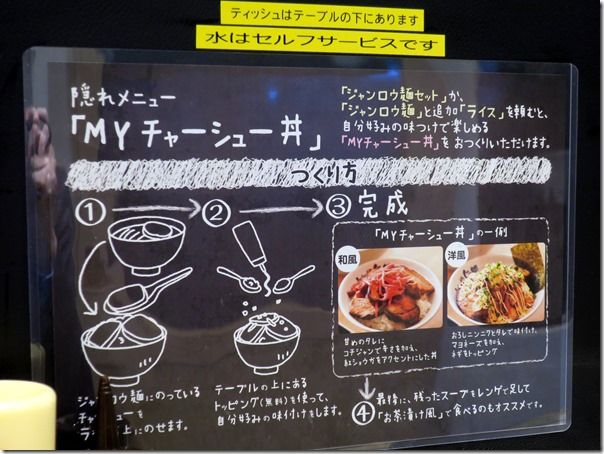 ティッシュはテーブルの下にあります
水はセルフサービスです
隠れメニュー
「MYチャーシュー丼」
「ジャンロウ麺セット」か、
「ジャンロウ麺」と追加「ライス」を頼むと、
自分好みの味つけで楽しめる
「MYチャーシュー丼」をおつくりいただけます。
つくり方
① ② ③完成
ジャンロウ麺にのっている
チャーシューを
上にのせます。
テーブルの上にある
トッピング(無料)を使って、
自分好みの味付けをします。
「MYチャーシュー丼」の一例
和風
甘めのタレに
コチジャンで辛さを加え、
紅ショウガをアクセントにした丼
洋風
おろしニンニクとタレで味付け。
マヨネーズを加え、
ネギをトッピング
④
最後に、残ったスープをレンゲで足して
「お茶漬け風」で食べるのもオススメです。